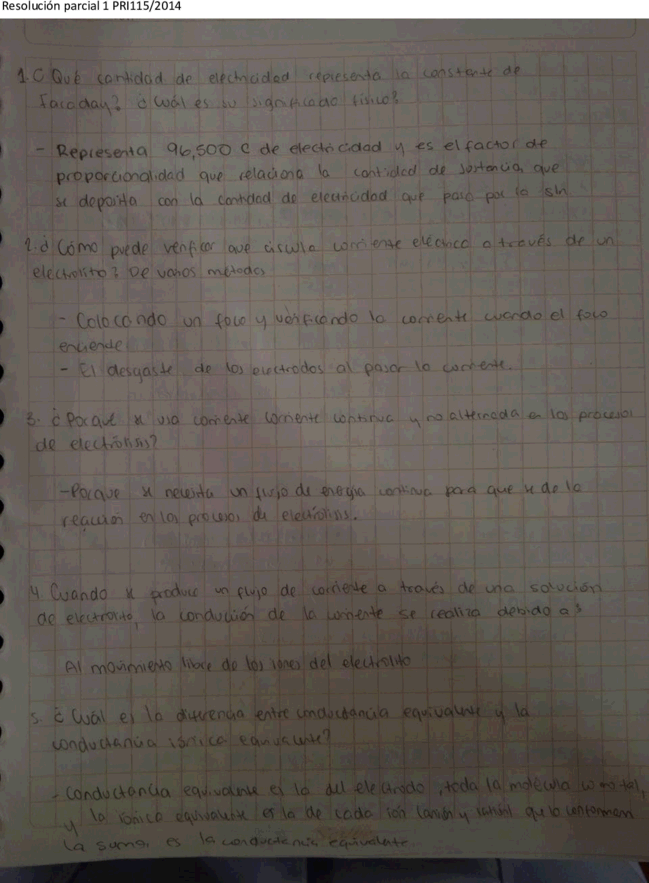 Resolución parcial 1 PRI115/2014
1. ¿ Qué cantidad de electricidad representa la constante de
Faraday? ¿ Cuál es su significado físico?
- Representa 96,500 C de electricidad y es el factor de
proporcionalidad que relaciona la cantidad de sustancia que
se deposita con la cantidad de electricidad que pasa por la sln
2. ¿ Cómo puede verificar que circula corriente eléctrica a través de un
electrolito? De varios metodos
- Colocando un foco y verificando la corriente cuando el foco
enciende
- El desgaste de los electrodos al pasar la corriente.
3. ¿ Porque se usa corriente corriente continua y no alternada en los procesos
de electrólisis?
- Porque se necesita un flujo de energia continua para que se de la
reacción en los procesos de electrólisis.
4 Cuando se produce un flujo de corriente a través de una solución
de electrolito, la conducción de la corriente se realiza debido a:
Al movimiento libre de los iones del electrolito
5. ¿ Cuál es la diferencia entre conductancia equivalente y la
conductancia iónica equivalente?
- Conductancia equivalente es la del electrodo, toda la molécula como tal,
y la iónica equivalente es la de cada ion que lo conforman
La suma, es la conductancia equivalente.